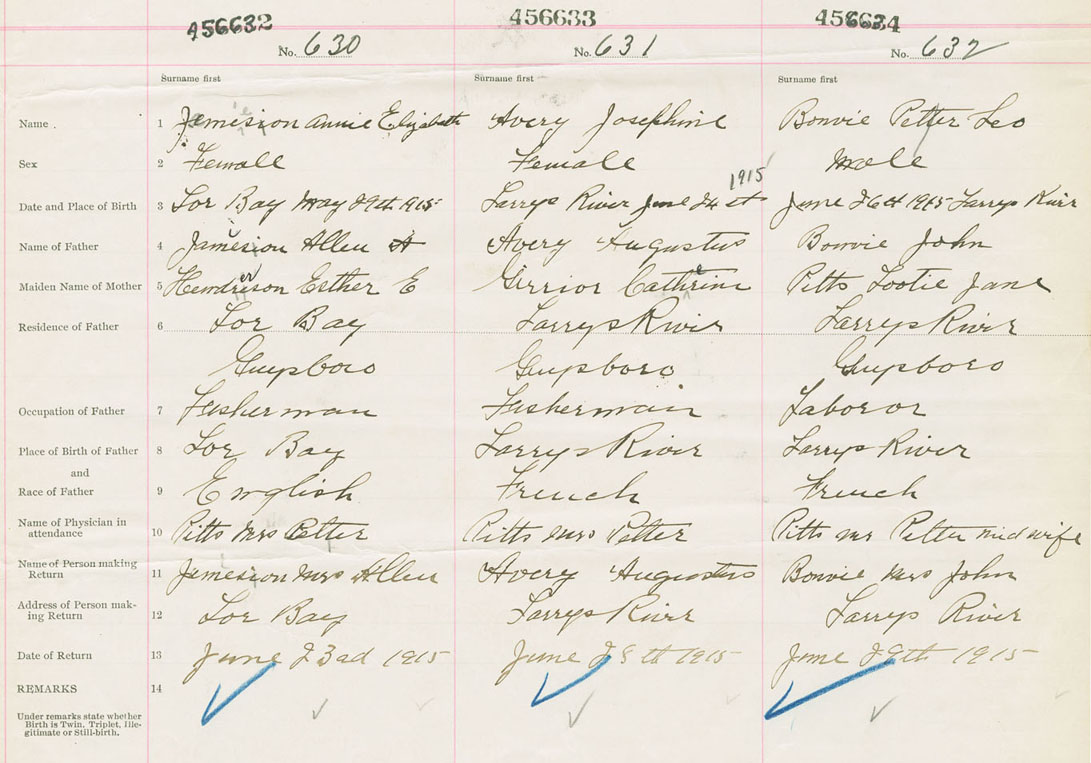 456632 456633 456634
No. 630 No. 631 No. 632
Surname first Surname first Surname first
Name . 1 Jemesion Annie Elizabeth Avery Josephine Bonvie Petter Leo
Sex 2 Female Female Male
1915
Date and Place of Birth 3 Lor Bay May 29th 1915 Larrys River June 24 st June 26th 1915 Larrys River
Name of Father 4 Jamesion Allen A Avery Augustus Bonvie John
Maiden Name of Mother 5 Esther E Gerrior Cathrine Pitts Lootie Jane
Residence of Father 6 Lor Bay Larrys River Larrys River
Guysboro Guysboro Guysboro
Occupation of Father 7 Fisherman Fisherman Laboror
Place of Birth of Father 8 Lor Bay Larrys River Larrys River
and
Race of Father 9 English French French
Name of Physician in
attendance 10 Pitts Mrs Petter Pitts Mrs Petter Pitts mr Petter midwife
Name of Person making
Return 11 Jemesion Mrs Allen Avery Augustus Bonvie Mrs John
Address of Person mak-
ing Return 12 Lor Bay Larrys River Larrys River
Date of Return 13 June 23ad 1915 June 28th 1915 June 29th 1915
REMARKS 14
Under remarks state whether
Birth is Twin, Triplet, Ille-
gitimate or Still-birth.